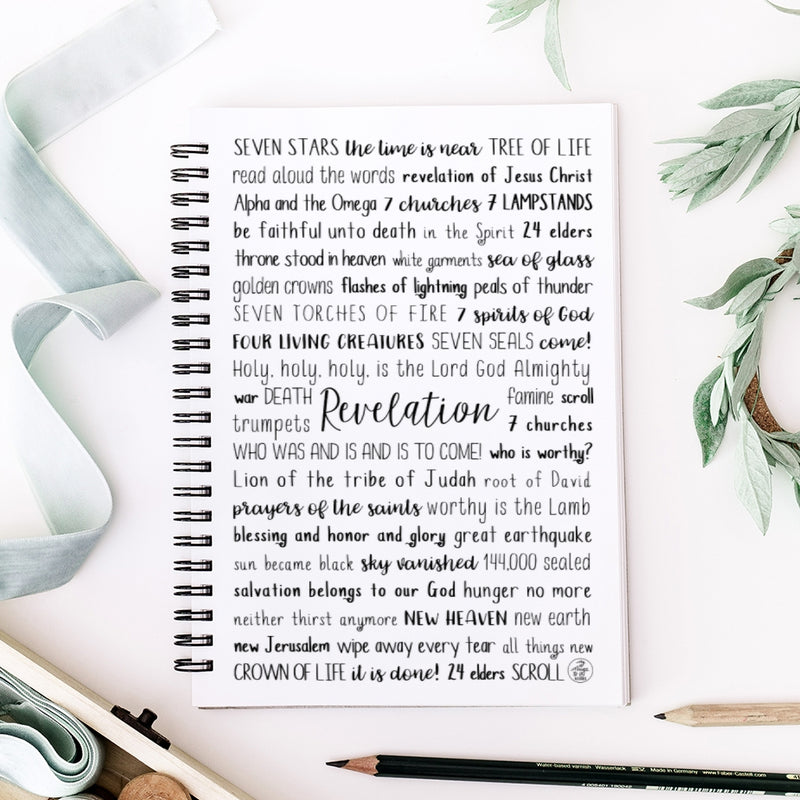 SEVEN STARS the time is near TREE OF LIFE
read aloud the words revelation of Jesus Christ
Alpha and the Omega 7 churches 7 LAMPSTANDS
be faithful unto death in the Spirit 24 elders
throne stood in heaven white garments sea of glass
golden crowns flashes of lightning peals of thunder
SEVEN TORCHES OF FIRE 7 spirits of God
FOUR LIVING CREATURES SEVEN SEALS come!
Holy, holy, holy, is the Lord God Almighty
war DEATH Revelation famine scroll
trumpets 7 churches
WHO WAS AND IS AND IS TO COME! who is worthy?
Lion of the tribe of Judah root of David
prayers of the saints worthy is the Lamb
blessing and honor and glory great earthquake
sun became black sky vanished 144,000 sealed
salvation belongs to our God hunger no more
neither thirst anymore NEW HEAVEN new earth
new Jerusalem wipe away every tear all things new
CROWN OF LIFE it is done! 24 elders SCROLL
Water-based varnish Wasserlack Made in Germany www.Faber-Castell.com